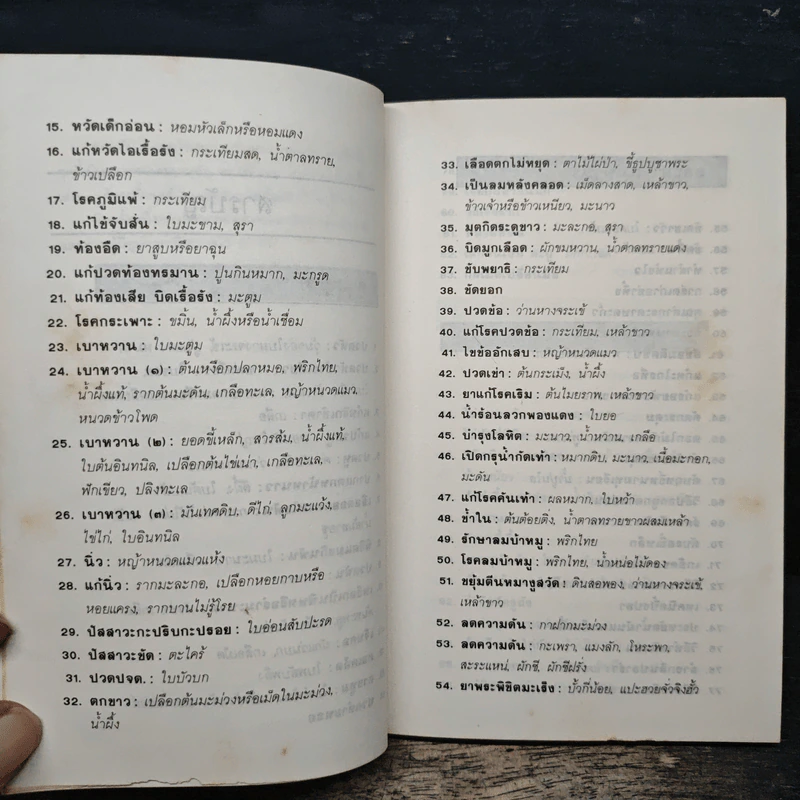 15. หวัดเด็กอ่อน : หอมหัวเล็กหรือหอมแดง
16. แก้หวัดไอเรื้อรัง : กระเทียมสด, น้ำตาลทราย,
ข้าวเปลือก
17. โรคภูมิแพ้ : กระเทียม
18. แก้ไข้จับสั่น : ใบมะขาม, สุรา
19. ท้องอืด : ยาสูบหรือยาฉุน
20. แก้ปวดท้องทรมาน : ปูนกินหมาก, มะกรูด
21. แก้ท้องเสีย บิดเรื้อรัง : มะตูม
22. โรคกระเพาะ : ขมิ้น, น้ำผึ้งหรือน้ำเชื่อม
23. เบาหวาน : ใบมะตูม
24. เบาหวาน (๑) : ต้นเหงือกปลาหมอ, พริกไทย,
น้ำผึ้งแท้, รากต้นมะดัน, เกลือทะเล, หญ้าหนวดแมว,
หนวดข้าวโพด
25. เบาหวาน (๒) : ยอดขี้เหล็ก, สารส้ม, น้ำผึ้งแท้,
ใบต้นอินทนิล, เปลือกต้นไข่เน่า, เกลือทะเล,
ฟักเขียว, ปลิงทะเล
26. เบาหวาน (๓) : มันเทศดิบ, ดีไก่, ลูกมะแว้ง,
ไข่ไก่, ใบอินทนิล
27. นิ่ว : หญ้าหนวดแมวแห้ง
28. แก้นิ่ว : รากมะละกอ, เปลือกหอยกาบหรือ
หอยแครง, รากบานไม่รู้โรย
29. ปัสสาวะกะปริบกะปรอย : ใบอ่อนสับปะรด
30. ปัสสาวะขัด : ตะไคร้
31. ปวดปจด. : ใบบัวบก
32. ตกขาว : เปลือกต้นมะม่วงหรือเม็ดในมะม่วง,
น้ำผึ้ง
33. เลือดตกไม่หยุด : ตาไม้ไผ่ป่า, ขี้ธูปบูชาพระ
34. เป็นลมหลังคลอด : เม็ดลางสาด, เหล้าขาว,
ข้าวเจ้าหรือข้าวเหนียว, มะนาว
35. มุตกิดระดูขาว : มะละกอ, สุรา
36. บิดมูกเลือด : ผักขมหวาน, น้ำตาลทรายแดง
37. ขับพยาธิ : กระเทียม
38. ขัดยอก
39. ปวดข้อ : ว่านหางจระเข้
40. แก้โรคปวดข้อ : กระเทียม, เหล้าขาว
41. ไขข้ออักเสบ : หญ้าหนวดแมว
42. ปวดเข่า : ต้นกระเม็ง, น้ำผึ้ง
43. ยาแก้โรคเริม : ต้นโมยราพ, เหล้าขาว
44. น้ำร้อนลวกพองแดง : ใบยอ
45. บำรุงโลหิต : มะนาว, น้ำหวาน, เกลือ
46. เปิดกรุน้ำกัดเท้า : หมากดิบ, มะนาว, เนื้อมะกอก,
มะดัน
47. แก้โรคคันเท้า : ผลหมาก, ใบหว้า
48. ช้ำใน : ต้นต้อยติ่ง, น้ำตาลทรายขาวผสมเหล้า
49. รักษาลมบ้าหมู : พริกไทย
50. โรคลมบ้าหมู : พริกไทย, น้ำหน่อไม้ดอง
51. ขยุ้มตีนหมางูสวัด : ดินสอพอง, ว่านหางจระเข้,
เหล้าขาว
52. ลดความดัน : กาฝากมะม่วง
53. ลดความดัน : กะเพรา, แมงลัก, โหระพา,
สะระแหน่, ผักชี, ผักชีฝรั่ง
54. ยาพระพิชิตมะเร็ง : บั้วกี่น้อย, แปะฮวยจั่วจิงฮั้ว